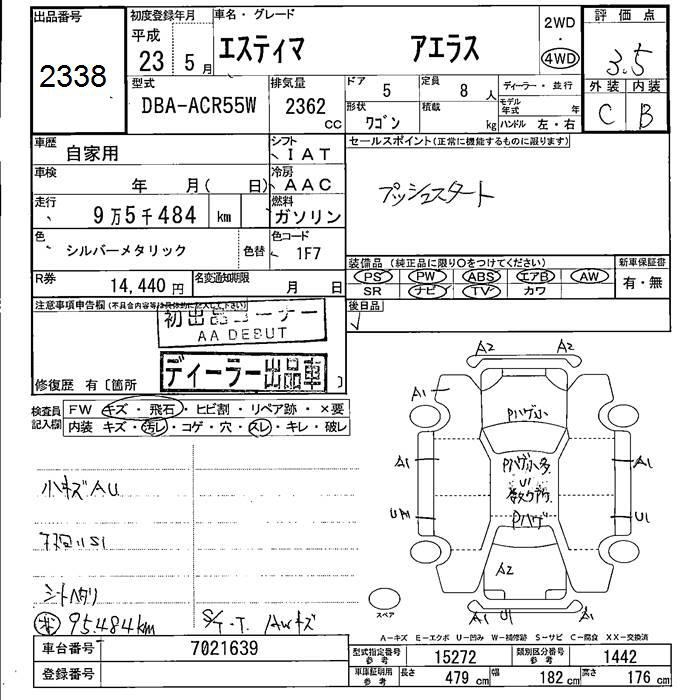 出品番号
2338
初度登録年月
平成
23 5月
車名・グレード
エスティマ アエラス
2WD
・
4WD
評価点
3.5
外装 内装
C B
型式
DBA-ACR55W
排気量
2362 CC
ドア
5
定員
8 人
ディーラー・並行
形状
ワゴン
積載
kg
モデル年式 年
ハンドル 左・右
車歴
自家用
シフト
IAT
車検
年 月( 日)
冷房
AAC
走行
9万5千484 km
燃料
ガソリン
色
シルバーメタリック
色替
色コード
1F7
R券
14,440円
名変通知期限
月 日
セールスポイント(正常に機能するものに限ります)
プッシュスタート
装備品 (純正品に限り○をつけてください)
PS PW ABS エアB AW
SR ナビ TV カワ
新車保証書
有・無
後日品
注意事項申告欄(不具合内容等は具体的に記入して下さい)
初出品コーナー
AA DEBUT
ディーラー出品車
修復歴 有〔箇所 〕
検査員記入欄
FW キズ・飛石・ヒビ割・リペア跡・×要
内装 キズ・汚レ・コゲ・穴・スレ・キレ・破レ
小キズAU
シートヘタリ
95.484km
S/T・T. AWキズ
A2 A2
A1
Pハゲ小
A1 Pハゲ小多 A1
U1
U1
Pハゲ
A2
A1 U1 A1
スペア
A-キズ E-エクボ U-凹み W-補修跡 S-サビ C-腐食 XX-交換済
車台番号
7021639
登録番号
型式指定番号 参考
15272
類別区分番号 参考
1442
車庫証明用 参考
長さ 479 cm 幅 182 cm 高さ 176 cm